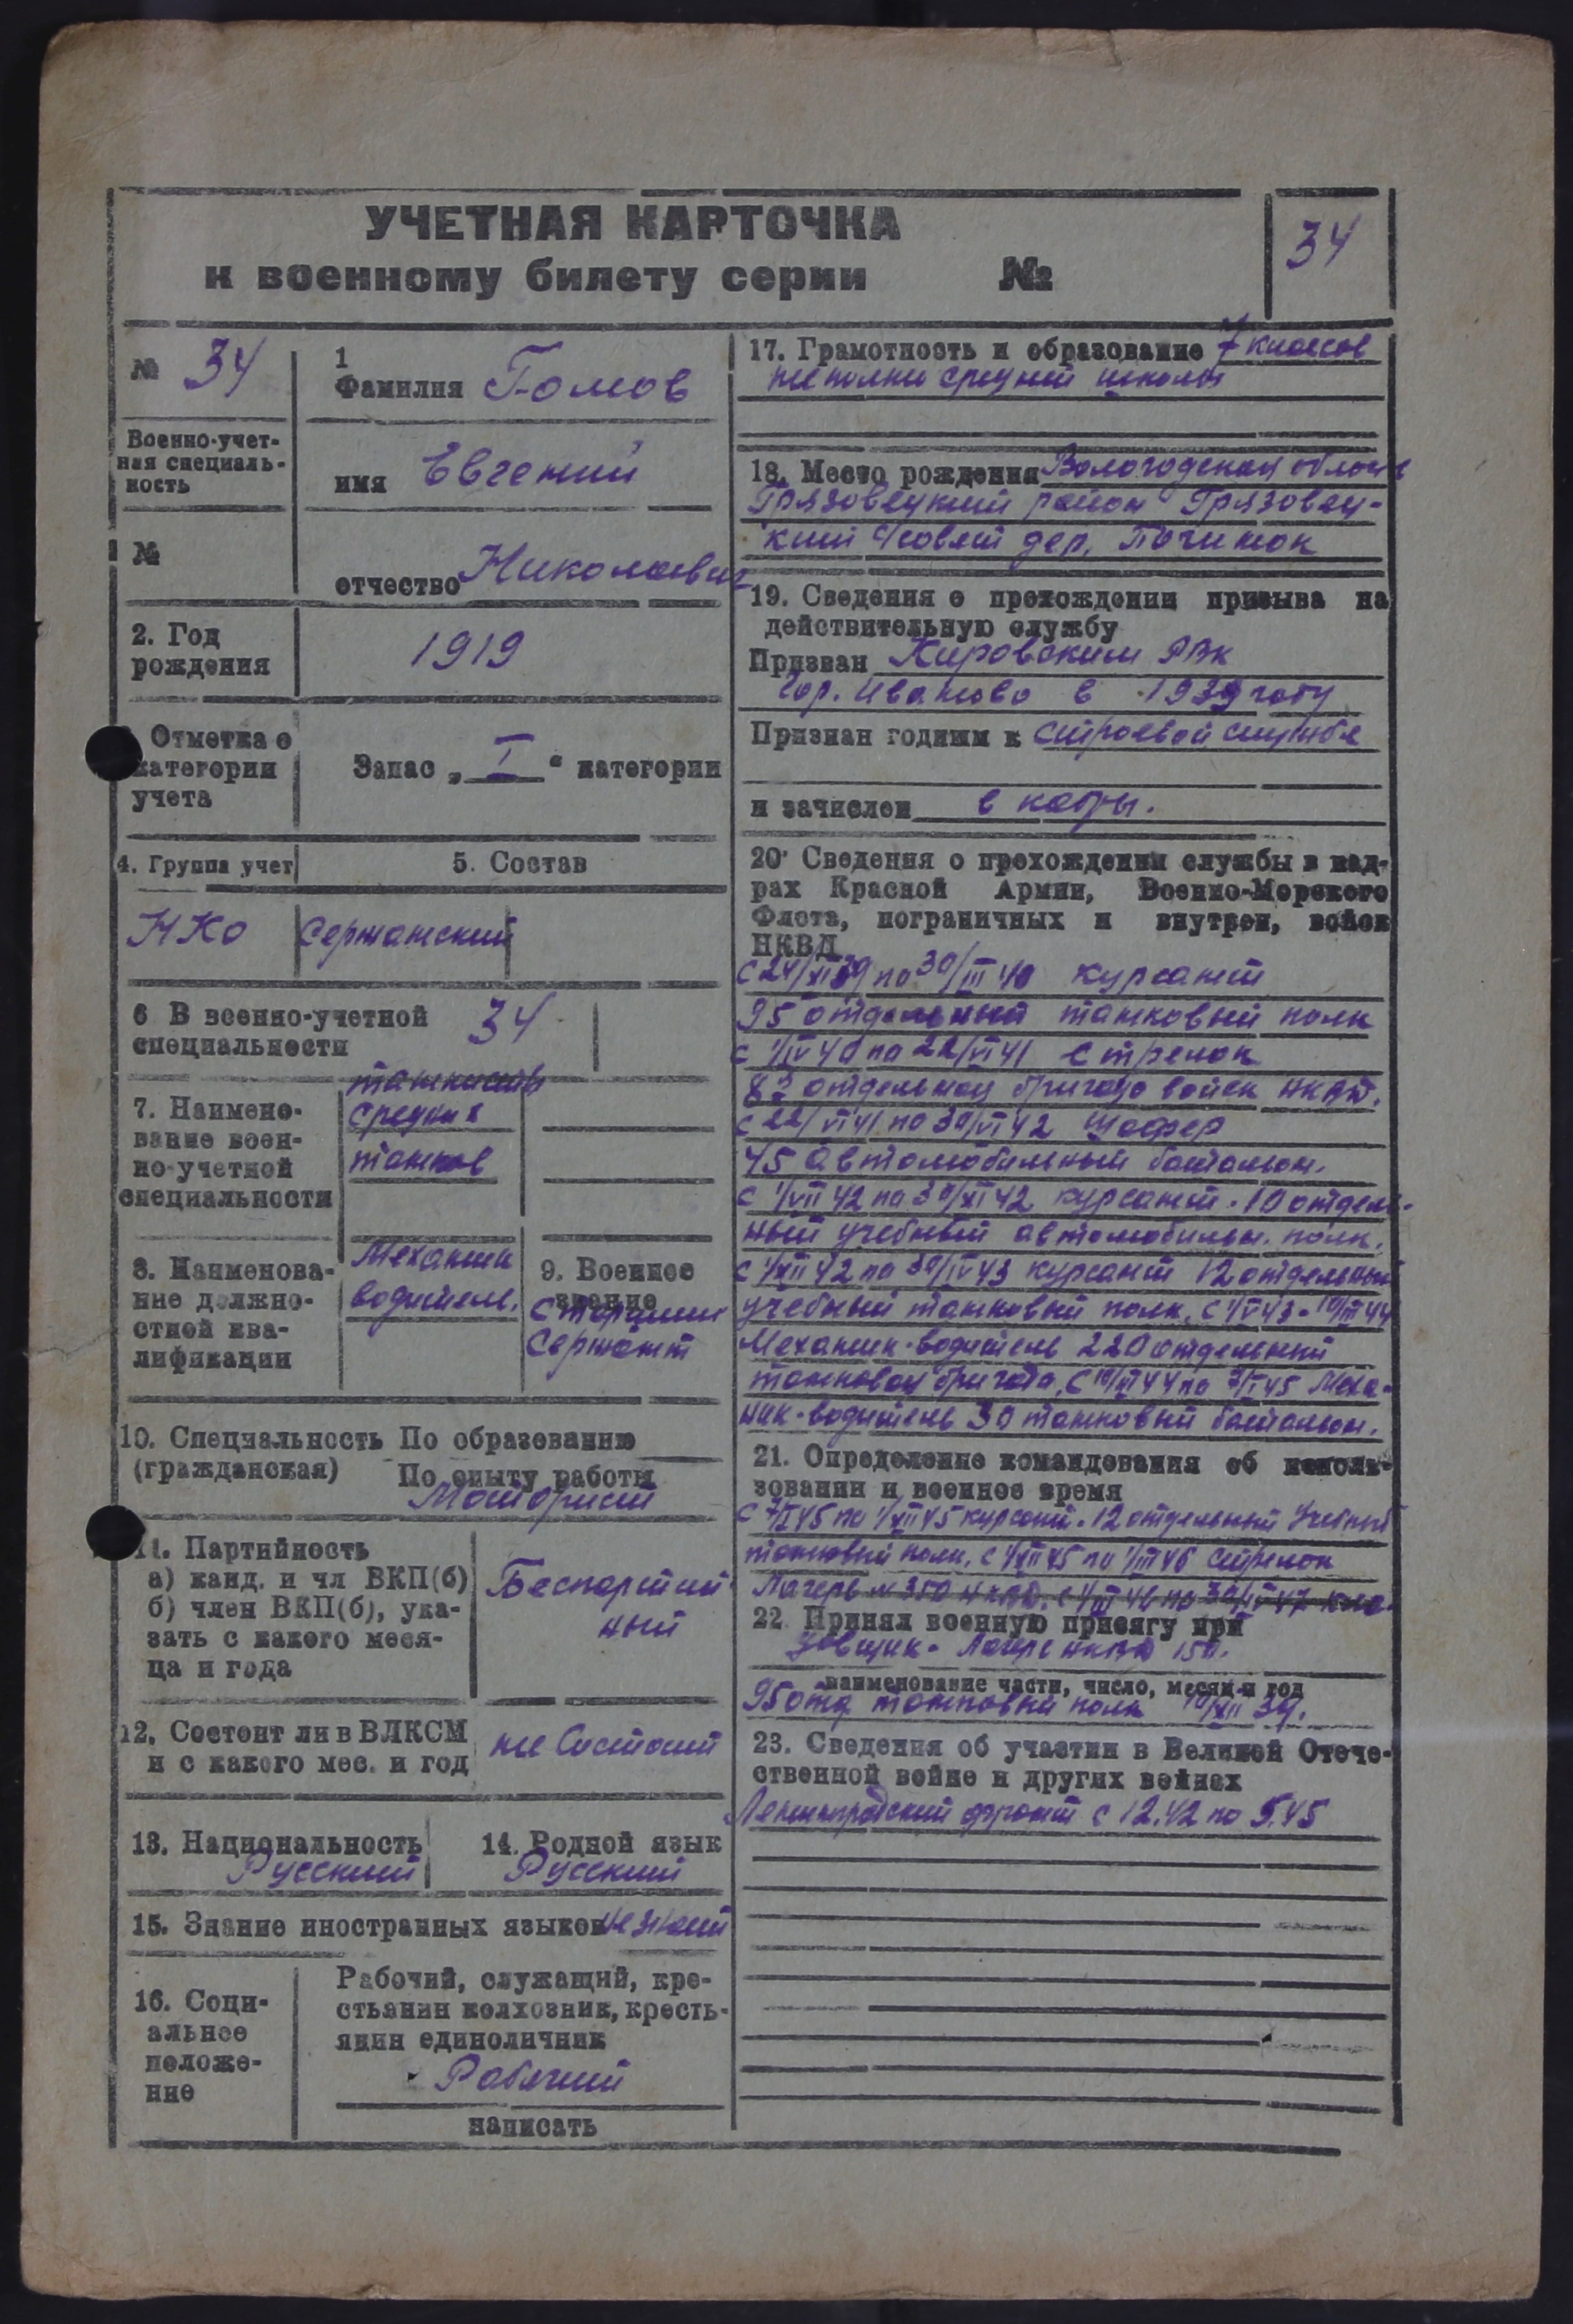 УЧЕТНАЯ КАРТОЧКА
к военному билету серии №
34
№ 34
Военно-учет-
ная специаль-
ность
№
1
Фамилия Громов
имя Евгений
отчество Николаевич
2. Год
рождения
1919
Отметка о
категории
учета
Запас „ I " категории
4. Группа учет
5. Состав
НКО
Сержантский
6 В военно-учетной
специальности
34
7. Наимено-
вание воен-
но-учетной
специальности
танкисты
средних
танков
8. Наименова-
ние должно-
стной ква-
лификации
Механик
водитель.
9. Военное
звание
Старший
Сержант
10. Специальность По образованию
(гражданская) По опыту работы
Моторист
11. Партийность
а) канд. и чл ВКП(б)
б) член ВКП(б), ука-
зать с какого меся-
ца и года
Беспартий
ный
12. Состоит ли в ВЛКСМ
и с какого мес. и год
не Состоит
13. Национальность
Русский
14. Родной язык
Русский
15. Знание иностранных языков не знает
16. Соци-
альное
положе-
ние
Рабочий, служащий, кре-
стьянин колхозник, кресть-
янин единоличник
Рабочий
написать
17. Грамотность и образование 7 классов
неполни средней школы
18. Место рождения Вологодская область
Грязовецкий район Грязовец-
кий с/совет дер. Починок
19. Сведения о прохождении призыва на
действительную службу
Призван Кировским РВК
гор. Иваново в 1939 году
Признан годным к строевой службе
и зачислен в кадры.
20 Сведения о прохождении службы в кад-
рах Красной Армии, Военно-Морского
Флота, пограничных и внутрен, войск
НКВД
С 24/XI 39 по 30/III 40 курсант
95 отдельный танковый полк
с 1/IV 40 по 22/VI 41 стрелок
83 отдельная бригада войск НКВД.
с 22/VI 41 по 30/VI 42 шофер
45 автомобильный батальон.
с 1/VII 42 по 30/XI 42 курсант. 10 отдель-
ный учебный автомобильн. полк.
с 1/XII 42 по 30/IV 43 курсант 12 отдельный
учебный танковый полк. С 1/V 43 - 10/III 44
Механик-водитель 220 отдельный
танковая бригада. С 10/ 44 по 7/I 45 Меха-
ник-водитель 30 танковый батальон.
21. Определение командования об исполь-
зовании в военное время
С 7/I 45 по 1/XII 45 курсант. 12 отдельный Учебный
танковый полк. с 1/XII 45 по 1/III 46 стрелок
Лагерь № 350 НКВД. с 1/III 46 по 30/IV 47 Кла-
22 Принял военную присягу при
довщик - Лагерь НКВД 150.
наименование части, число, месяц и год
95 отд танковый полк 10/XII 39.
23. Сведения об участии в Великой Отече-
ственной войне и других войнах
Ленинградский фронт с 12.42 по 5.45